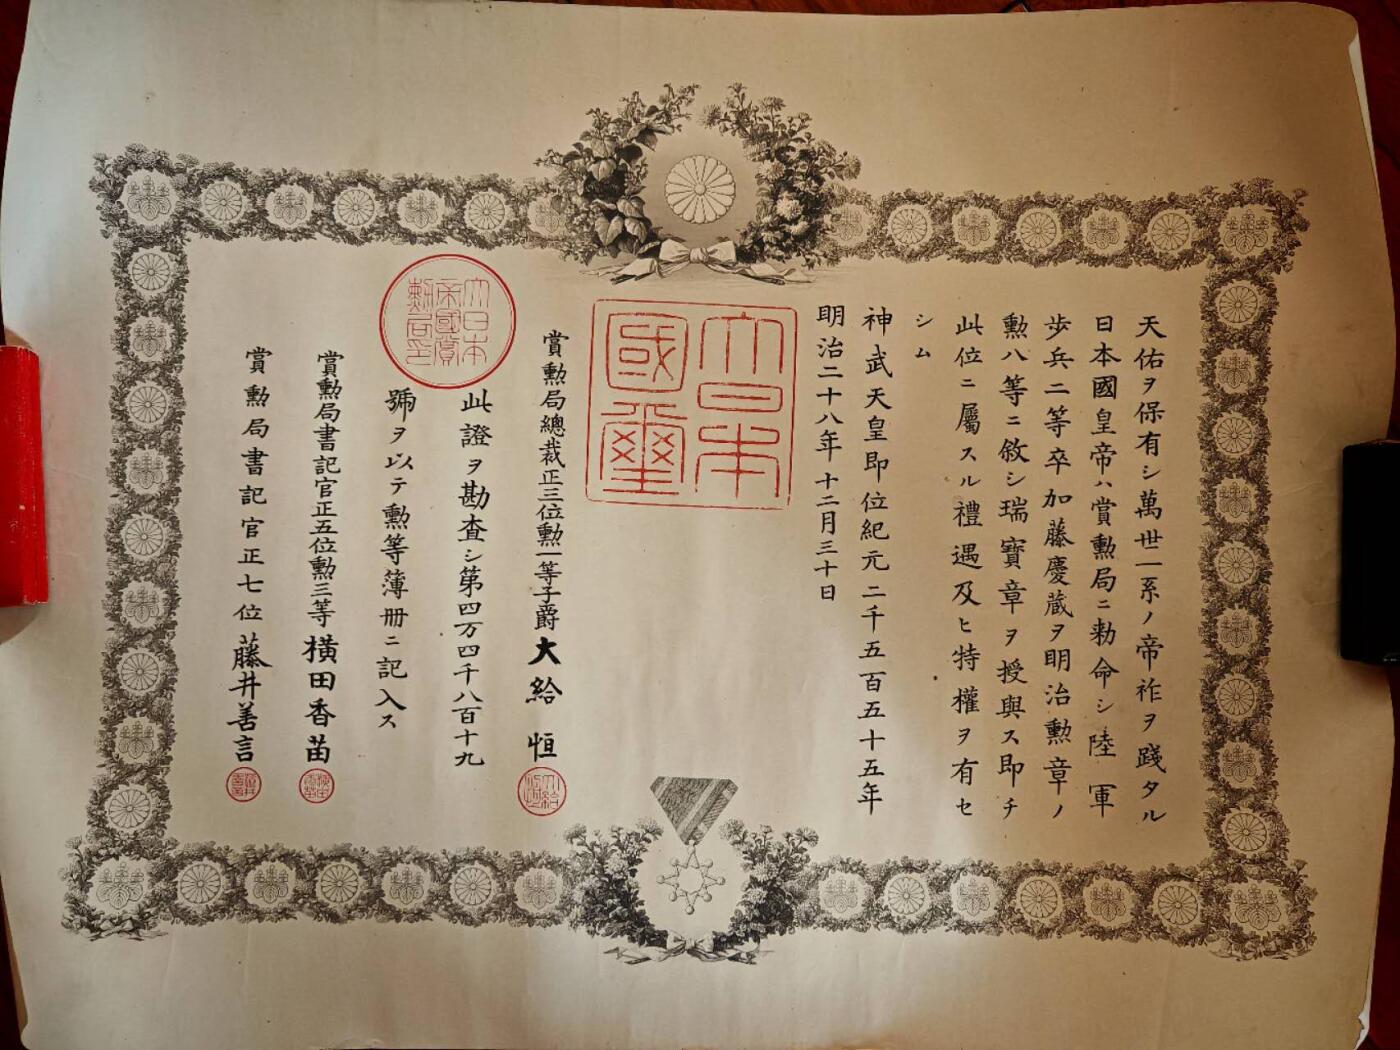 天佑ヲ保有シ萬世一系ノ帝祚ヲ踐タル
日本國皇帝ハ賞勲局ニ勅命シ陸軍
歩兵二等卒加藤慶蔵ヲ明治勲章ノ
勲八等ニ敘シ瑞寶章ヲ授與ス即チ
此位ニ屬スル禮遇及ヒ特權ヲ有セ
シム
神武天皇即位紀元二千五百五十五年
明治二十八年十二月三十日
大日本國璽
賞勲局總裁正三位勲一等子爵大給恒
此證ヲ勘査シ第四万四千八百十九
號ヲ以テ勲等簿冊ニ記入ス
大日本帝國賞勲局印
賞勲局書記官正五位勲三等横田香苗
賞勲局書記官正七位藤井善言